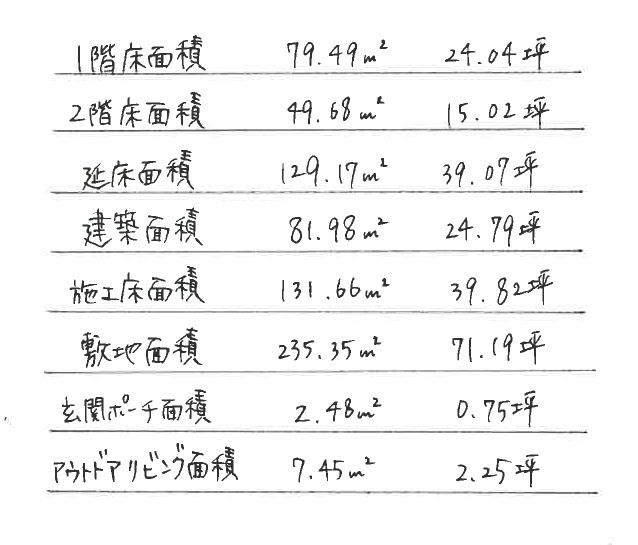 1階床面積 79.49m² 24.04坪
2階床面積 49.68m² 15.02坪
延床面積 129.17m² 39.07坪
建築面積 81.98m² 24.79坪
施工床面積 131.66m² 39.82坪
敷地面積 235.35m² 71.19坪
玄関ポーチ面積 2.48m² 0.75坪
アウトドアリビング面積 7.45m² 2.25坪